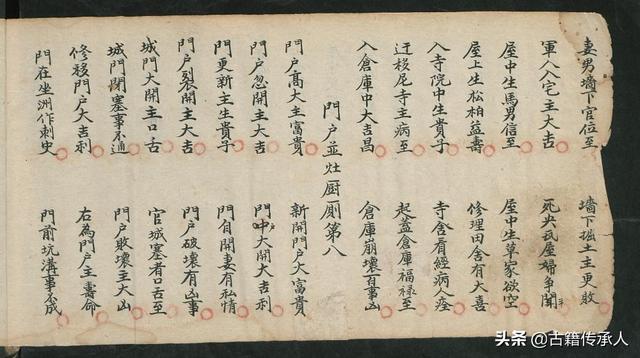 妻男墻下官位至 墻下掘土主更敗
軍人入宅主大吉 死夾瓦屋婦爭鬧
屋中生馬男信至 屋中生草家欲空
屋上生松柏益壽 修理田舍有大喜
入寺院中生貴子 寺舍看經病人痊
迁移尼寺主病至 起蓋倉庫福祿至
入倉庫中大吉昌 倉庫崩壞百事凶
門户並灶厨厠第八
門户高大主富貴 新開門户大富貴
門户忽開主大吉 門中大開大吉利
門更新主生貴子 門自開妻有私情
門户裂開主大吉 門户破壞有凶事
城門大開主口舌 官城塞者口舌至
城門閉塞事不通 門户敗壞主大凶
修移門户大吉利 右為門户主壽命
門在坐洲作刺史 門前坑溝事不成
头条 @古籍传承人